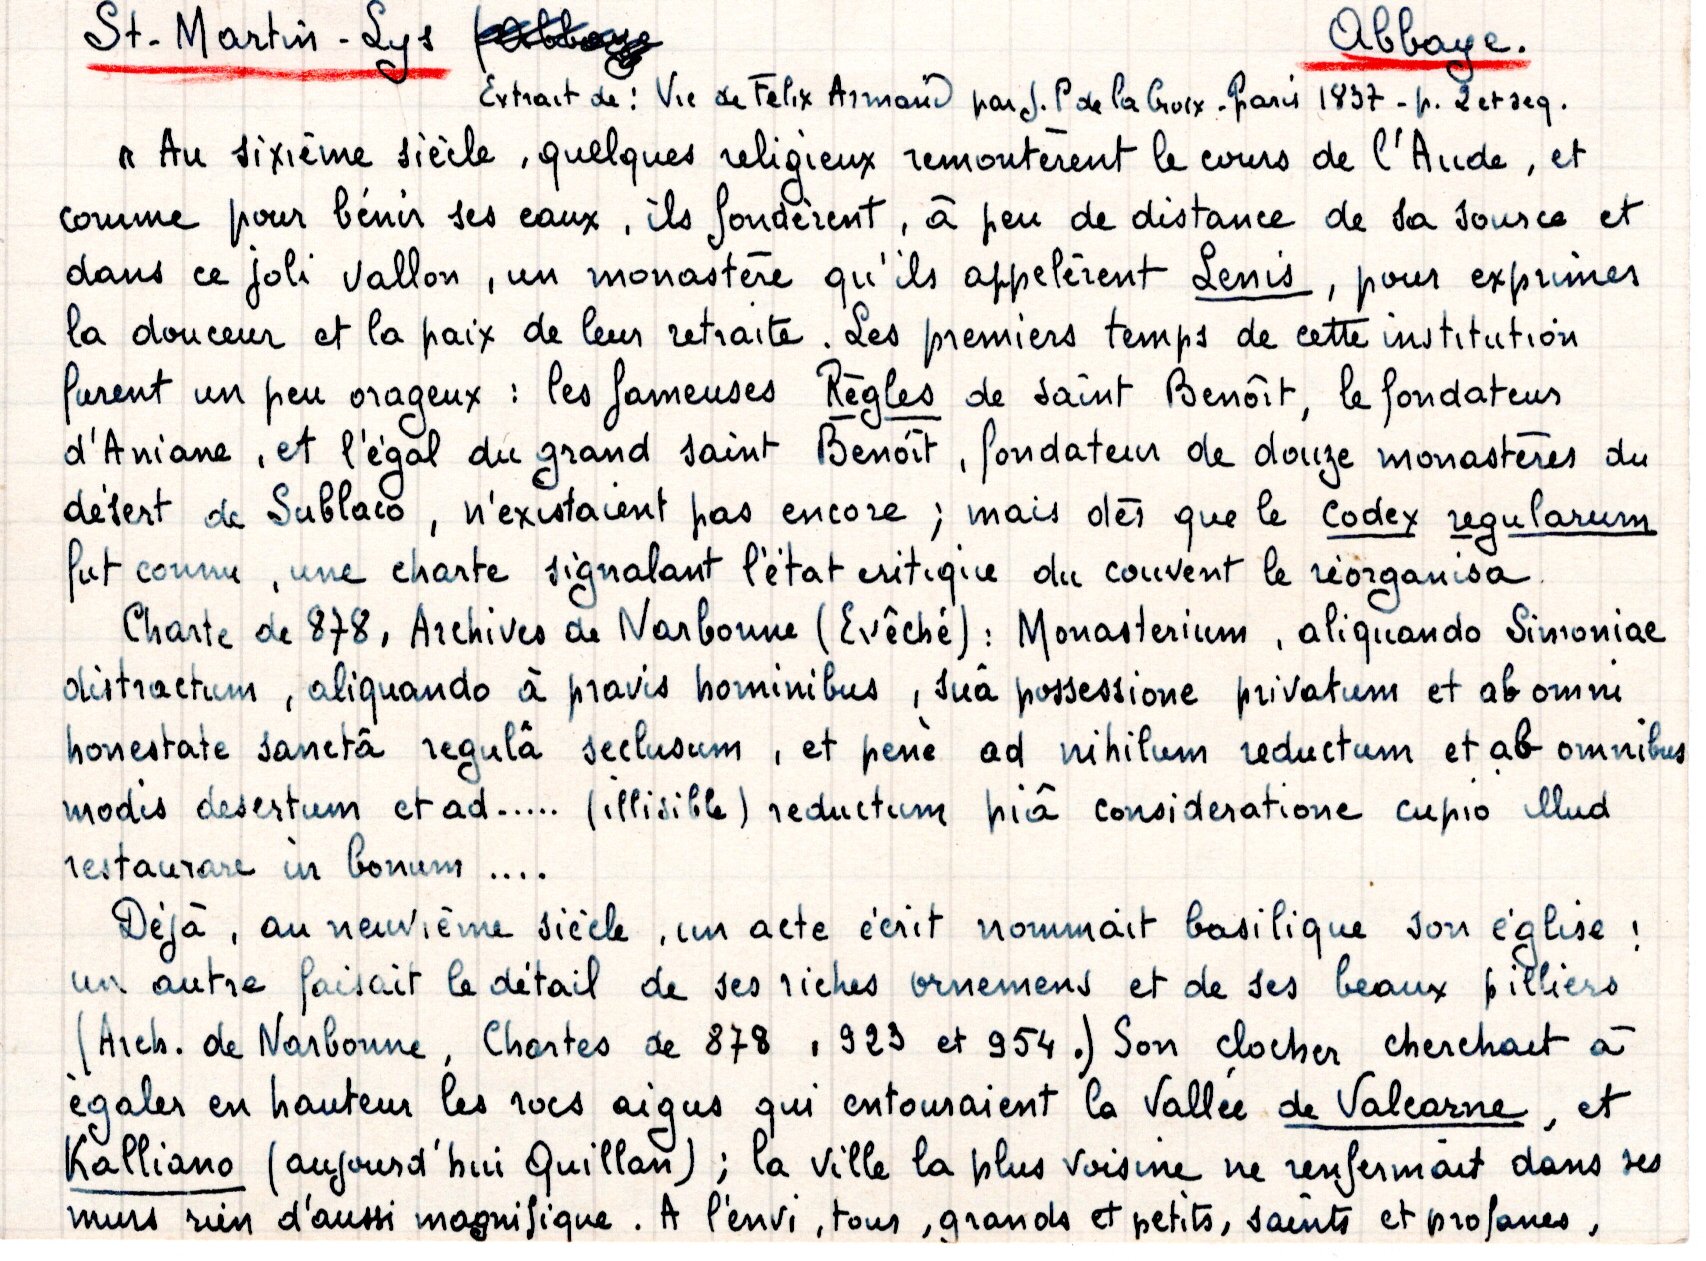 St-Martin-Lys Abbaye.
Extrait de : Vie de Félix Armand par J. P. de la Croix - Paris 1837 - p. 2 et seq.
" Au sixième siècle, quelques religieux remontèrent le cours de l'Aude, et
comme pour bénir ses eaux, ils fondèrent, à peu de distance de sa source et
dans ce joli vallon, un monastère qu'ils appelèrent Lenis, pour exprimer
la douceur et la paix de leur retraite. Les premiers temps de cette institution
furent un peu orageux : les fameuses Règles de saint Benoît, le fondateur
d'Aniane, et l'égal du grand saint Benoît, fondateur de douze monastères du
désert de Sublaco, n'existaient pas encore ; mais dès que le codex regularum
fut connu, une charte signalant l'état critique du couvent le réorganisa.
Charte de 878, Archives de Narbonne (Evêché) : Monasterium, aliquando Simoniae
distractum, aliquando à pravis hominibus, suâ possessione privatum et ab omni
honestate sanctâ regulâ seclusum, et penè ad nihilum reductum et ab omnibus
modis desertum et ad ..... (illisible) reductum piâ consideratione cupio illud
restaurare in bonum ....
Déjà, au neuvième siècle, un acte écrit nommait basilique son église ;
un autre faisait le détail de ses riches ornemens et de ses beaux pilliers
(Arch. de Narbonne, Chartes de 878, 923 et 954.) Son clocher cherchait à
égaler en hauteur les rocs aigus qui entouraient la Vallée de Valcarne, et
Kalliano (aujourd'hui Quillan) ; la ville la plus voisine ne renfermait dans ses
murs rien d'aussi magnifique. A l'envi, tous, grands et petits, saints et profanes,